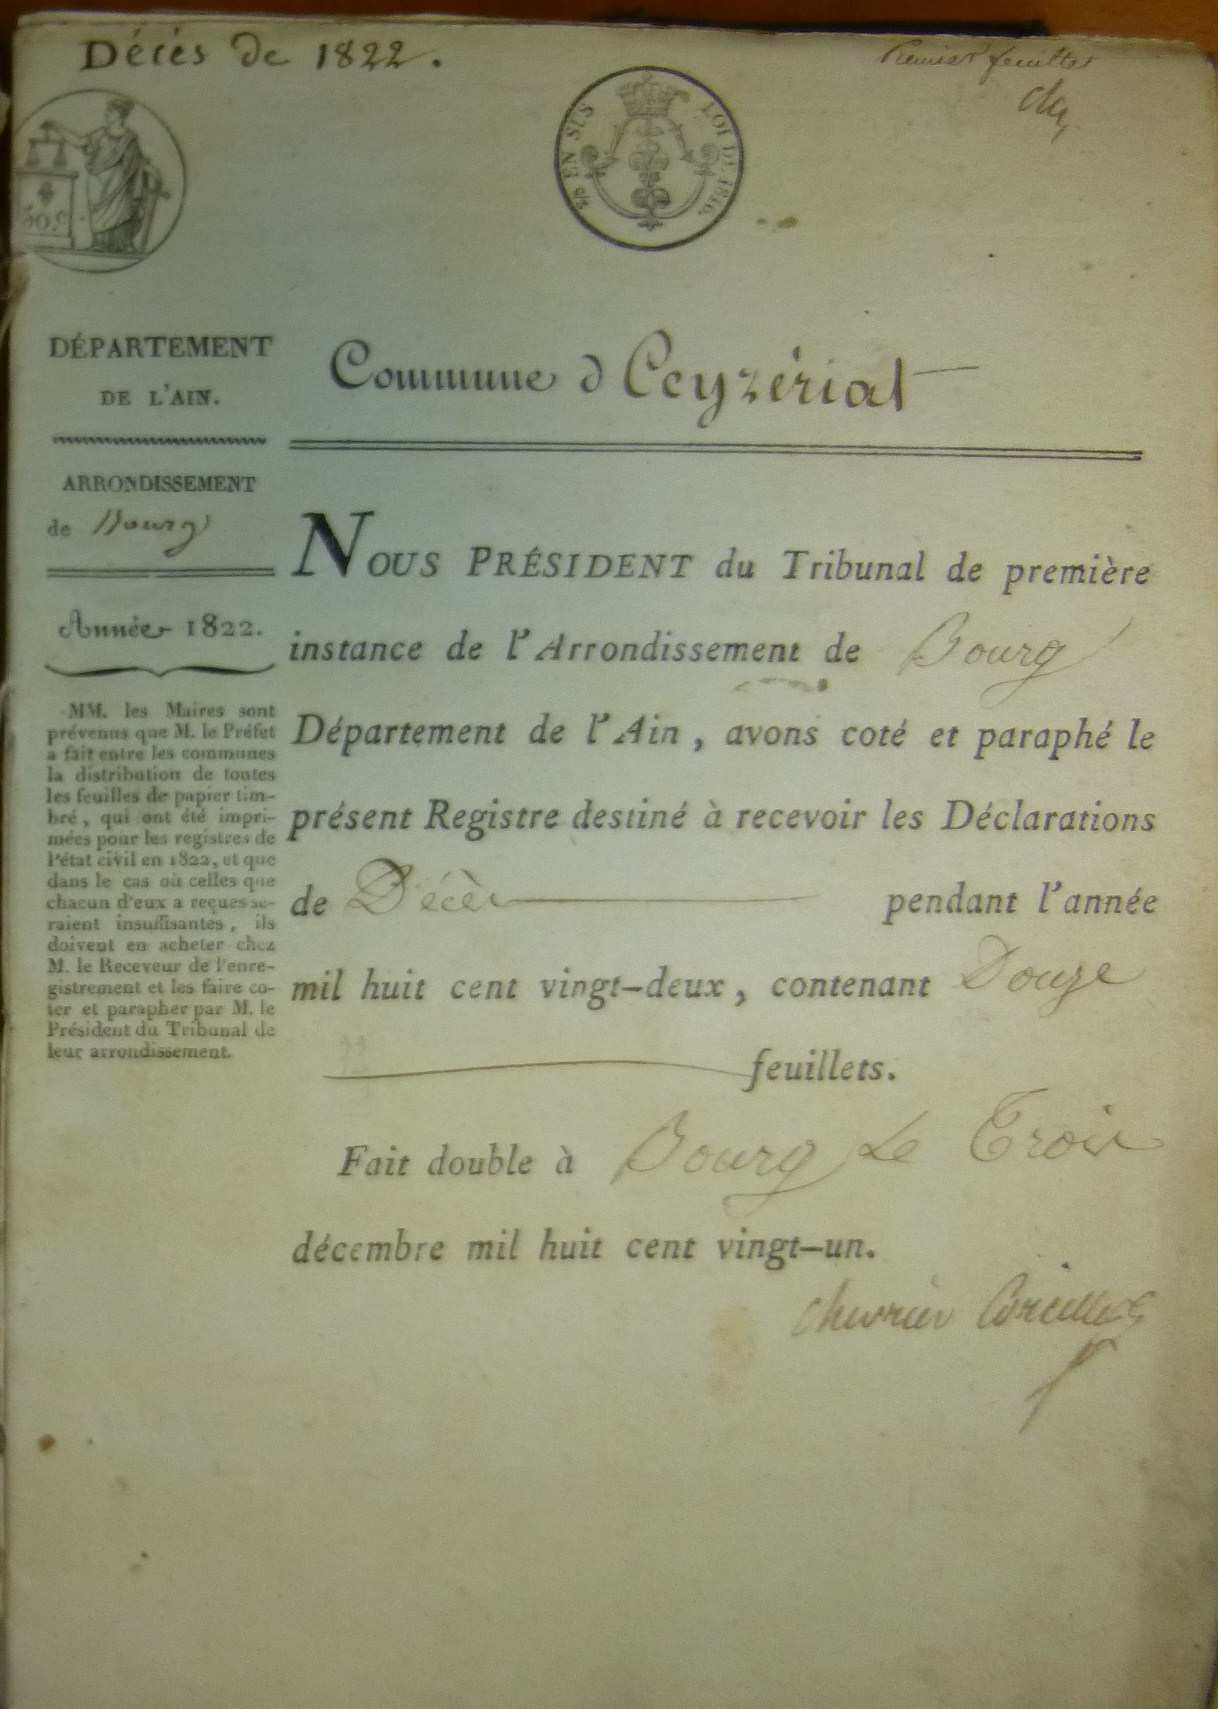 Décès de 1822.
Premier feuillet
50 c.
EN SUS
LOI DE 1816.
DÉPARTEMENT
DE L'AIN.
Commune d Ceyzériat
ARRONDISSEMENT
de Bourg
Année 1822.
MM. les Maires sont
prévenus que M. le Préfet
a fait entre les communes
la distribution de toutes
les feuilles de papier tim-
bré, qui ont été impri-
mées pour les registres de
l'état civil en 1822, et que
dans le cas où celles que
chacun d'eux a reçues se-
raient insuffisantes, ils
doivent en acheter chez
M. le Receveur de l'enre-
gistrement et les faire co-
ter et parapher par M. le
Président du Tribunal de
leur arrondissement.
NOUS PRÉSIDENT du Tribunal de première
instance de l'Arrondissement de Bourg
Département de l'Ain, avons coté et paraphé le
présent Registre destiné à recevoir les Déclarations
de Décès pendant l'année
mil huit cent vingt-deux, contenant Douze
feuillets.
Fait double à Bourg Le Trois
décembre mil huit cent vingt-un.